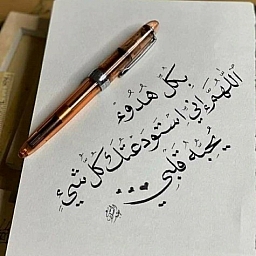 بكل هدوء
اللهم إني استودعتك كل شيءٍ
يحبه قلبي